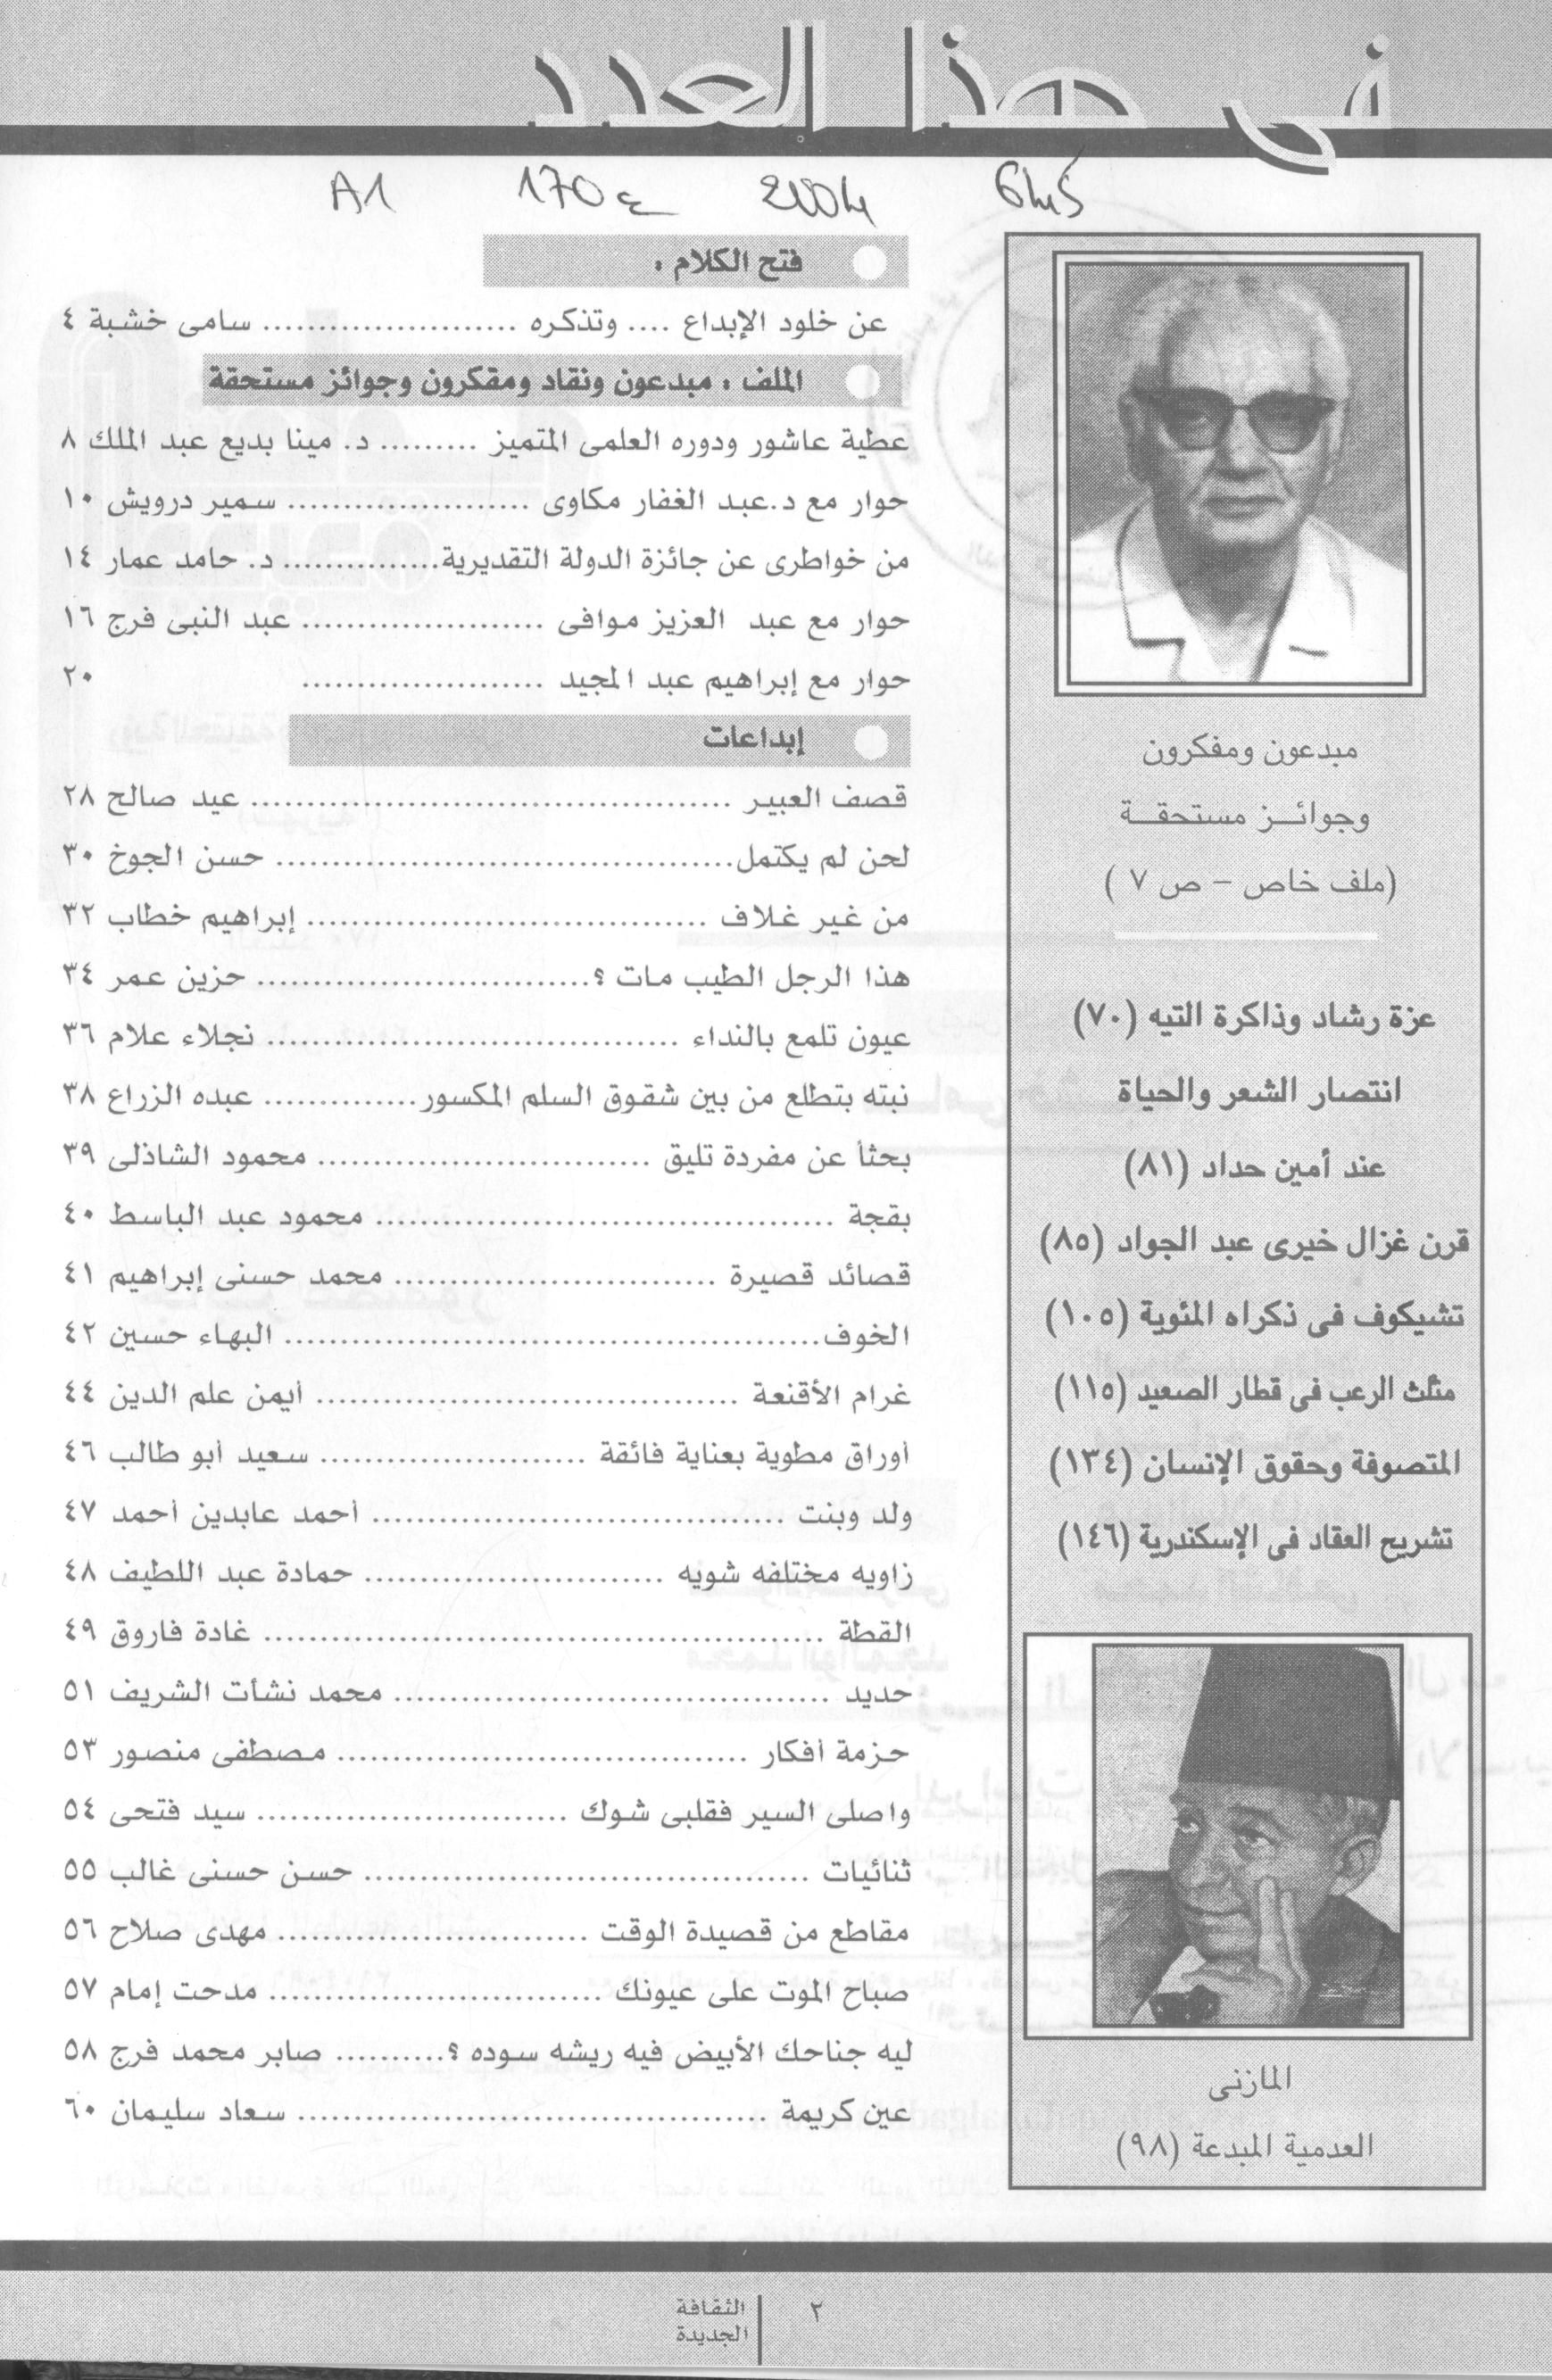 فى هذا العدد
A1 170 ع 2004
فتح الكلام :
عن خلود الإبداع .... وتذكره ...................... سامى خشبة ٤
الملف : مبدعون ونقاد ومفكرون وجوائز مستحقة
عطية عاشور ودوره العلمى المتميز ......... د. مينا بديع عبد الملك ٨
حوار مع د.عبد الغفار مكاوى ..................... سمير درويش ١٠
من خواطرى عن جائزة الدولة التقديرية.............. د. حامد عمار ١٤
حوار مع عبد العزيز موافى ..................... عبد النبى فرج ١٦
حوار مع إبراهيم عبد المجيد ..................... ٢٠
إبداعات
قصف العبير .......................................... عيد صالح ٢٨
لحن لم يكتمل........................................ حسن الجوخ ٣٠
من غير غلاف ................................... إبراهيم خطاب ٣٢
هذا الرجل الطيب مات ؟............................. حزين عمر ٣٤
عيون تلمع بالنداء .................................... نجلاء علام ٣٦
نبته بتطلع من بين شقوق السلم المكسور.............. عبده الزراع ٣٨
بحثاً عن مفردة تليق ............................. محمود الشاذلى ٣٩
بقجة ........................................ محمود عبد الباسط ٤٠
قصائد قصيرة ............................ محمد حسنى إبراهيم ٤١
الخوف............................................... البهاء حسين ٤٢
غرام الأقنعة ..................................... أيمن علم الدين ٤٤
أوراق مطوية بعناية فائقة ....................... سعيد أبو طالب ٤٦
ولد وبنت .................................... أحمد عابدين أحمد ٤٧
زاويه مختلفه شويه .......................... حمادة عبد اللطيف ٤٨
القطة ................................................. غادة فاروق ٤٩
حديد ...................................... محمد نشأت الشريف ٥١
حزمة أفكار .................................... مصطفى منصور ٥٣
واصلى السير فقلبى شوك ........................... سيد فتحى ٥٤
ثنائيات ....................................... حسن حسنى غالب ٥٥
مقاطع من قصيدة الوقت ........................... مهدى صلاح ٥٦
صباح الموت على عيونك ............................. مدحت إمام ٥٧
ليه جناحك الأبيض فيه ريشه سوده ؟.......... صابر محمد فرج ٥٨
عين كريمة ......................................... سعاد سليمان ٦٠
مبدعون ومفكرون
وجوائـــز مستحقـــة
(ملف خاص – ص ٧ )
عزة رشاد وذاكرة التيه (٧٠)
انتصار الشعر والحياة
عند أمين حداد (٨١)
قرن غزال خيرى عبد الجواد (٨٥)
تشيكوف فى ذكراه المئوية (١٠٥)
مثلث الرعب فى قطار الصعيد (١١٥)
المتصوفة وحقوق الإنسان (١٣٤)
تشريح العقاد فى الإسكندرية (١٤٦)
المازنى
العدمية المبدعة (٩٨)
٢
الثقافة
الجديدة